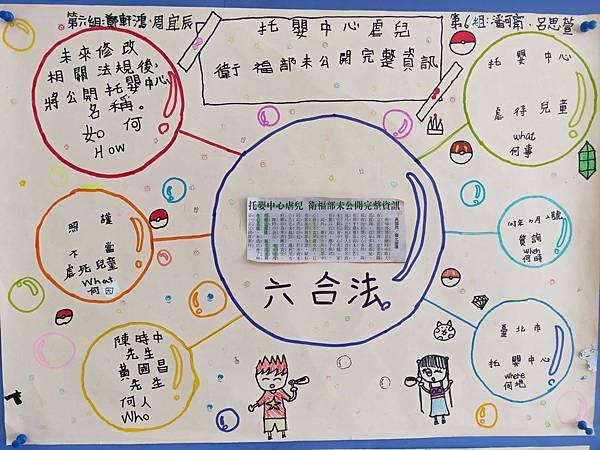 第六組:鄭軒鴻、周宜辰
托嬰中心虐兒
衛福部未公開完整資訊
第6組:潘可甯、呂思萱
未來修改
相關法規後,
將公開托嬰中心
名稱。
如何
How
托嬰中心
虐待兒童
what
何事
托嬰中心虐兒 衛福部未公開完整資訊
六合法
照護
不當
虐死兒童
What
何因
質詢
when
何時
陳時中
先生
黃國昌
先生
何人
Who
臺北市
托嬰中心
where
何地